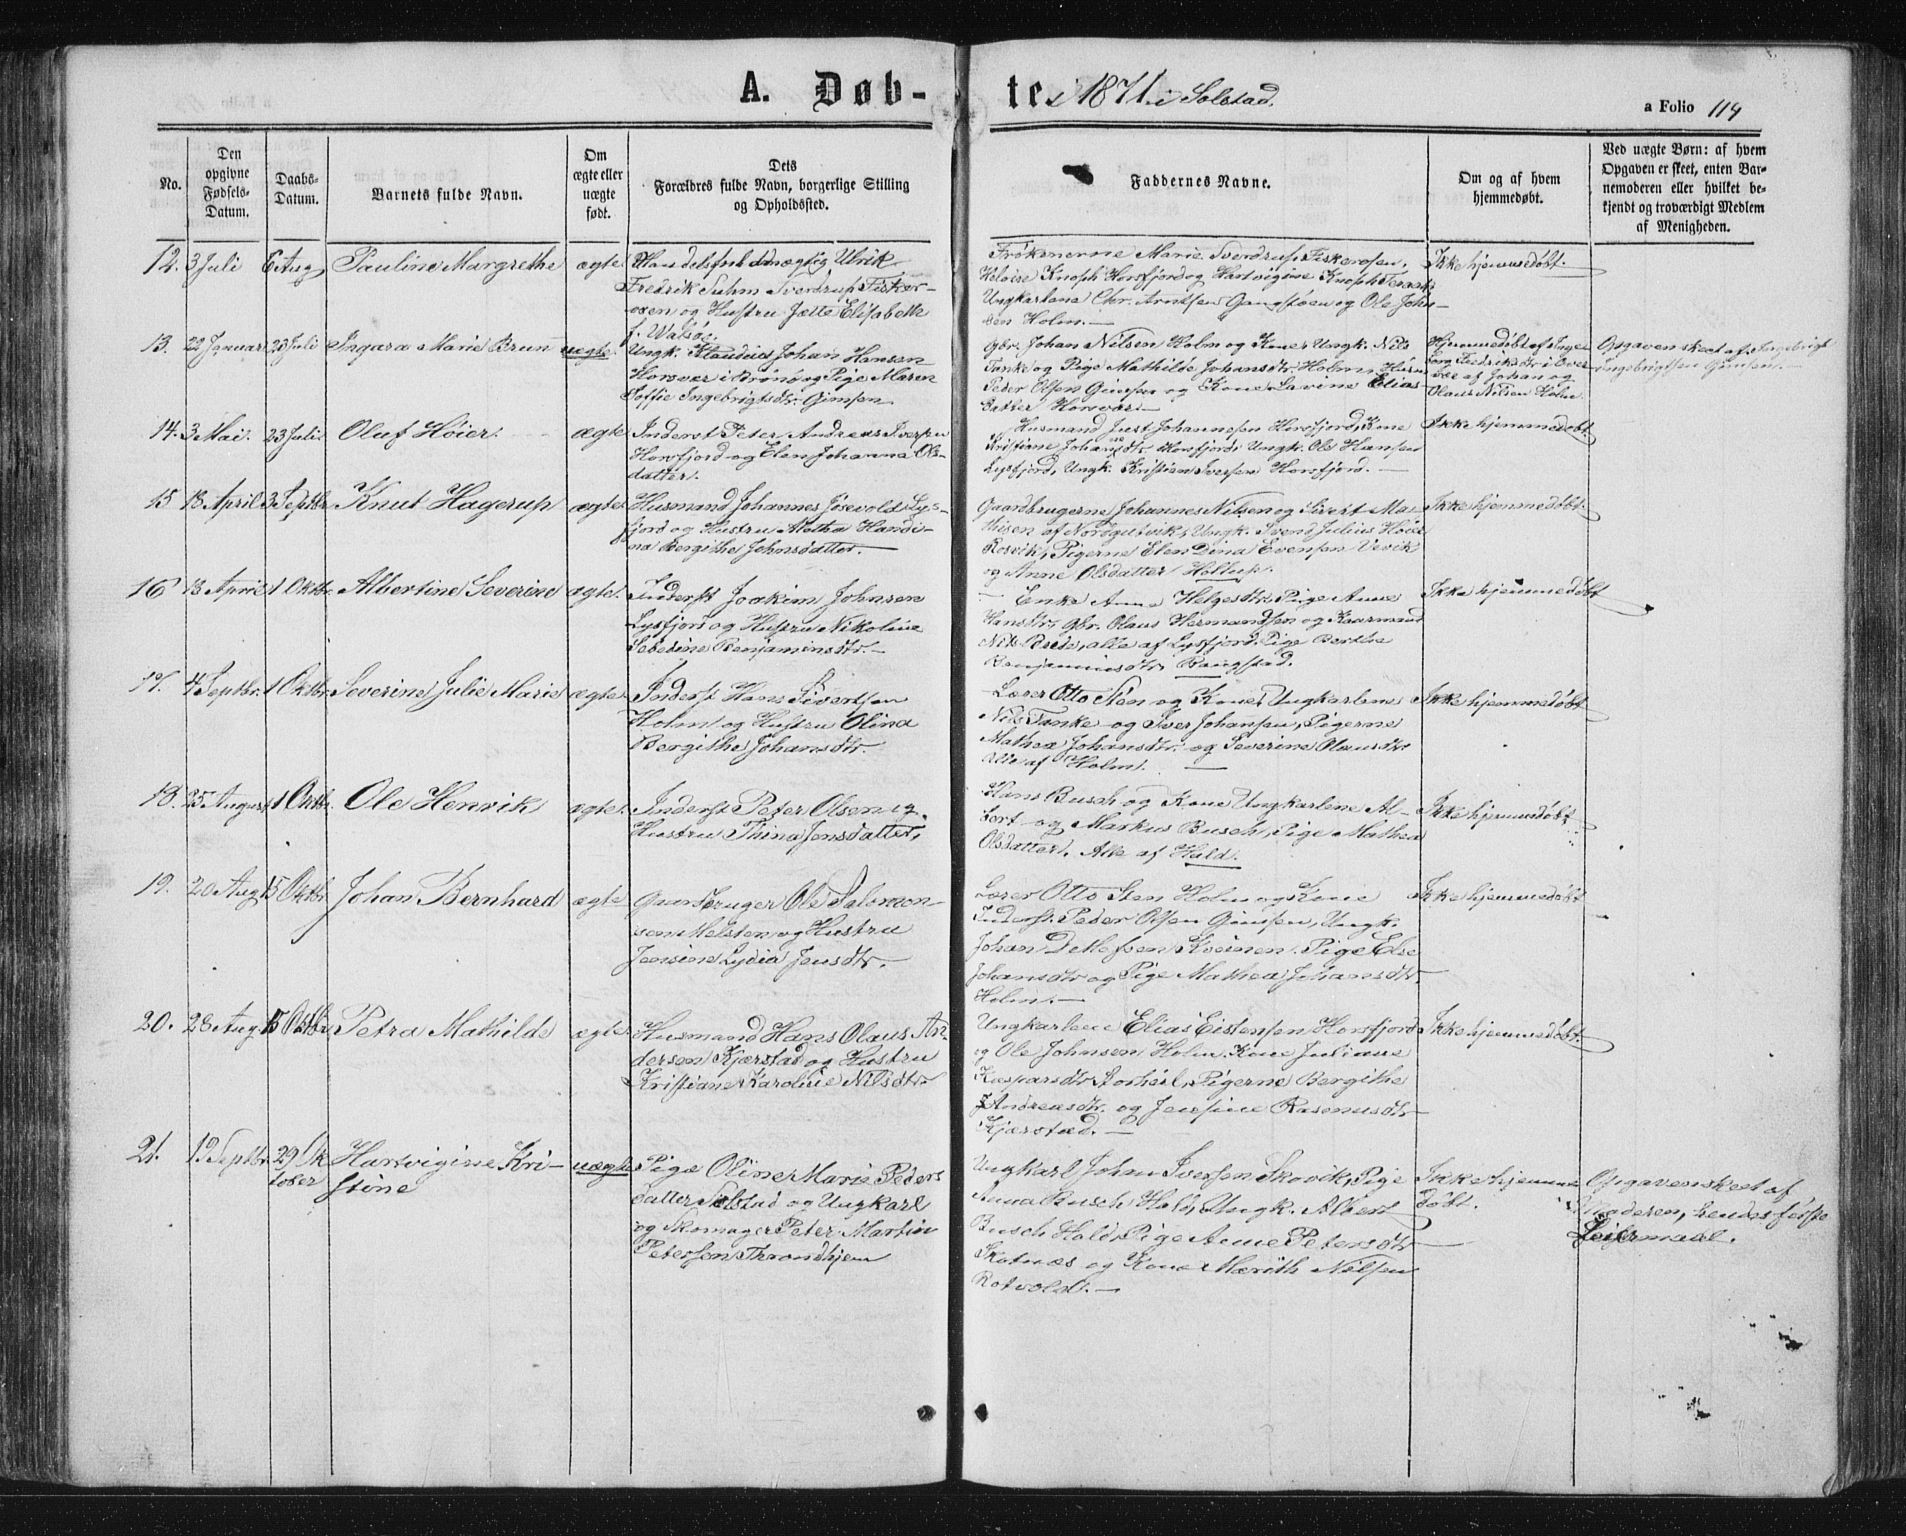 A. Døb-
te i 1871 i Solstad.
a Folio 114
No.
Den
opgivne
Fødsels-
Datum.
Daabs-
Datum.
Barnets fulde Navn.
Om
ægte eller
uægte
født.
Dets
Forældres fulde Navn, borgerlige Stilling
og Opholdssted.
Faddernes Navne.
Om og af hvem
hjemmedøbt.
Ved uægte Børn: af hvem
Opgaven er skeet, enten Bar-
nemoderen eller hvilket be-
kjendt og troværdigt Medlem
af Menigheden.
12. 3 Juli 6 Aug Pauline Margrethe ægte
Handelsfuldmægtig Ulrik
Fredrik Suhm Sverdrup Fisker-
osen og Hustru Jette Elisabeth
f. Watsøe.
Frøkenerne Marie Sverdrup Fiskerosen,
Heloise Knoph Horsfjord og Hartvigine Knoph Teraak
Ungkarlene Chr. Arntsen Gangstøen og Ole John-
sen Holm.
Ikke hjemmedøbt.
13. 22 Januar 23 Juli Ingara Marie Brun uægte
Ungk. Klaudius Johan Hansen
Horsvær i Brønø og Pige Maren
Soffie Ingebrigtsdtr. Gimsen
Gbr. Johan Nilsen Holm og Kone, Ungk. Nils
Tanke og Pige Mathilde Johansdtr. Holm,
Peder Olsen Gimsen og Kone Lavine Elias-
datter Horsvær.
Hjemmedøbt af Inge-
borg Fredriksdtr. i Over-
vær af Johan og
Olaus Nilsen Holm.
Opgaven skeet af Ingebrigt
Ingebrigtsen Gimsen.
14. 3 Mai. 23 Juli. Oluf Høier. ægte
Inderst Peter Andreas Iversen
Horsfjord og Elen Johanna Ols-
datter.
Husmand Just Johannesen Horsfjord, Kone
Kristiane Johansdtr. Horsfjord, Ungk. Ole Hansen
Lysfjord, Ungk. Kristian Iversen Horsfjord.
Ikke hjemmedøbt.
15 13 April 3 Septbr Knut Hagerup ægte
Husmand Johannes Jøsevold Lys-
fjord og Hustru Handi-
na Bergithe Johnsdatter.
Gaardbrugerne Johannes Nilsen og Sivert Ma-
thisen af Nordgutvik, Ungk. Svend Julius Høier
Rosvik, Pigerne Elen Dina Evensen Vevik
og Anne Olsdatter Hollup.
Ikke hjemmedøbt.
16 13 April 1 Oktbr. Albertine Severine ægte.
Inderst Joakim Johnsen
Lysfjord og Hustru Nikoline
Sebedine Benjaminsdtr.
Enke Anne Helgesdtr. Pige Anne
Hansdtr, Gbr. Olaus Hermandsen og Kaarmand
alle af Lysfjord, Pige Berthe
Benjaminsdtr. Bangstad.
Ikke hjemmedøbt
17. 4 Septbr. 1 Oktbr. Severine Julie Marie ægte
Inderst Hans Sivertsen
Holm og Hustru Olina
Bergithe Johansdtr.
Lærer Otto Sten og Kone, Ungkarlene
Nils Tanke og Iver Johansen, Pigerne
Mathea Johansdtr. og Severine Olausdtr.
Alle af Holm.
Ikke hjemmedøbt
18. 25 August 1 Oktb. Ole Henrik ægte.
Inderst Peter Olsen og
Hustru Thina Jensdatter,
Hans Busch og Kone Ungkarlene Al-
bert og Markus Busch, Pige Mathea
Olsdatter. Alle af Hald.
Ikke hjemmedøbt
19. 20 Aug 15 Oktbr Johan Bernhard ægte
Gaardbruger Ole Salomon-
sen Melsten og Hustru
Jensine Lydia Jensdtr.
Lærer Otto Sten Holm og Kone
Inderst Peder Olsen Gimsen, Ungk.
Johan Detlefsen Kveinen. Pige Else
Johansdtr og Pige Mathea Johansdtr
Holm.
Ikke hjemmedøbt
20. 28 Aug 15 Oktbr Petra Mathilde ægte
Husmand Hans Olaus An-
dersen Kjærstad og Hustru
Kristiane Karoline Nilsdtr
Ungkarlene Elias Eistensen Horsfjord
og Ole Johnsen Holm. Kone Juliane
Kasparsdtr. Pigerne Bergithe
Andreasdtr. og Jensine Rasmusdtr
Kjærstad.
Ikke hjemmedøbt.
21. 19 Septbr. 29 Ok- Hartvigine Kri- uægte
tober stine
Pige Oline Marie Peders
datter Solstad og Ungkarl
og Skomager Peter Martin
Petersen Throndhjem
Ungkarl Johan Iversen Skovik, Pige
Anna Busch Hald, Ungk. Albert
Busch Hald, Pige Anne Petersdtr
Skotnæs og Kone Mærith Nilsen
Rotvold.
Ikke hjemme
døbt.
Opgaven skeet af
Moderen, hendes første
Leiermaal.